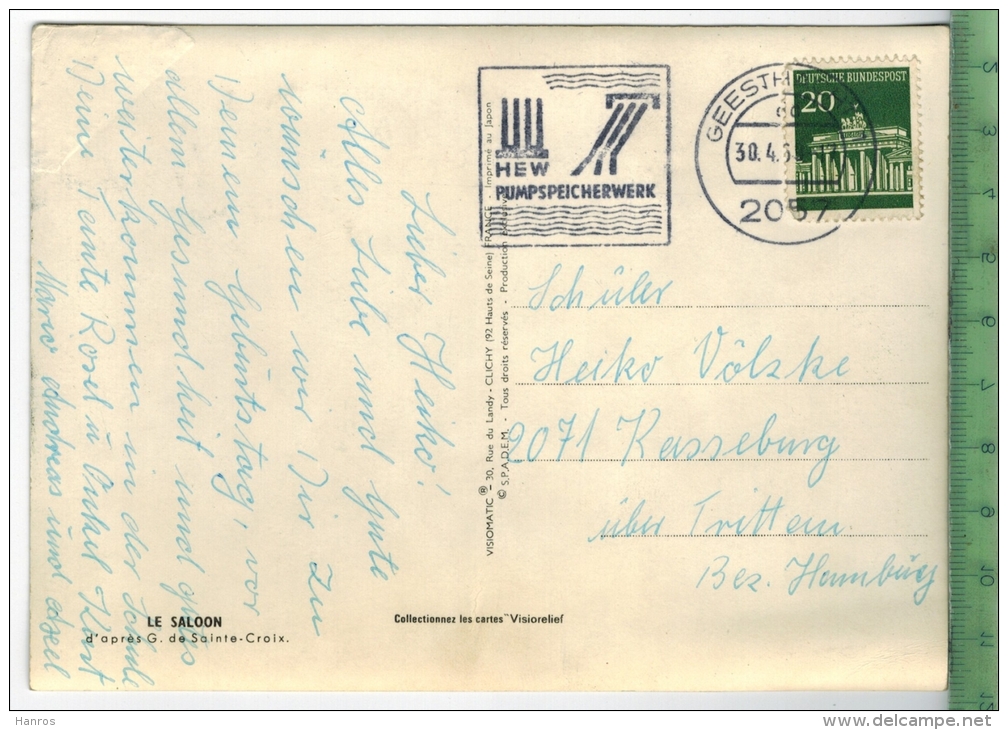 Lieber Heiko!
Alles Liebe und Gute
wünschen wir Dir zu
Deinem Geburtstag, vor
allem Gesundheit und gutes
weiterkommen in der Schule
Deine Tante Rosel u Onkel Kurt
Andreas und Axel
LE SALOON
d'après G. de Sainte-Croix.
Collectionnez les cartes "Visiorelief
VISIOMATIC ® – 30, Rue du Landy - CLICHY (92 Hauts de Seine) FRANCE - Imprimé au Japon
© S.P.A.D.E.M. - Tous droits réservés - Production
HEW
PUMPSPEICHERWERK
GEESTH
30.4.6
2057
DEUTSCHE BUNDESPOST
20
Schüler
Heiko Völzke
2071 Kasseburg
über Trittau
Bez. Hamburg
Hanros
delcampe.net